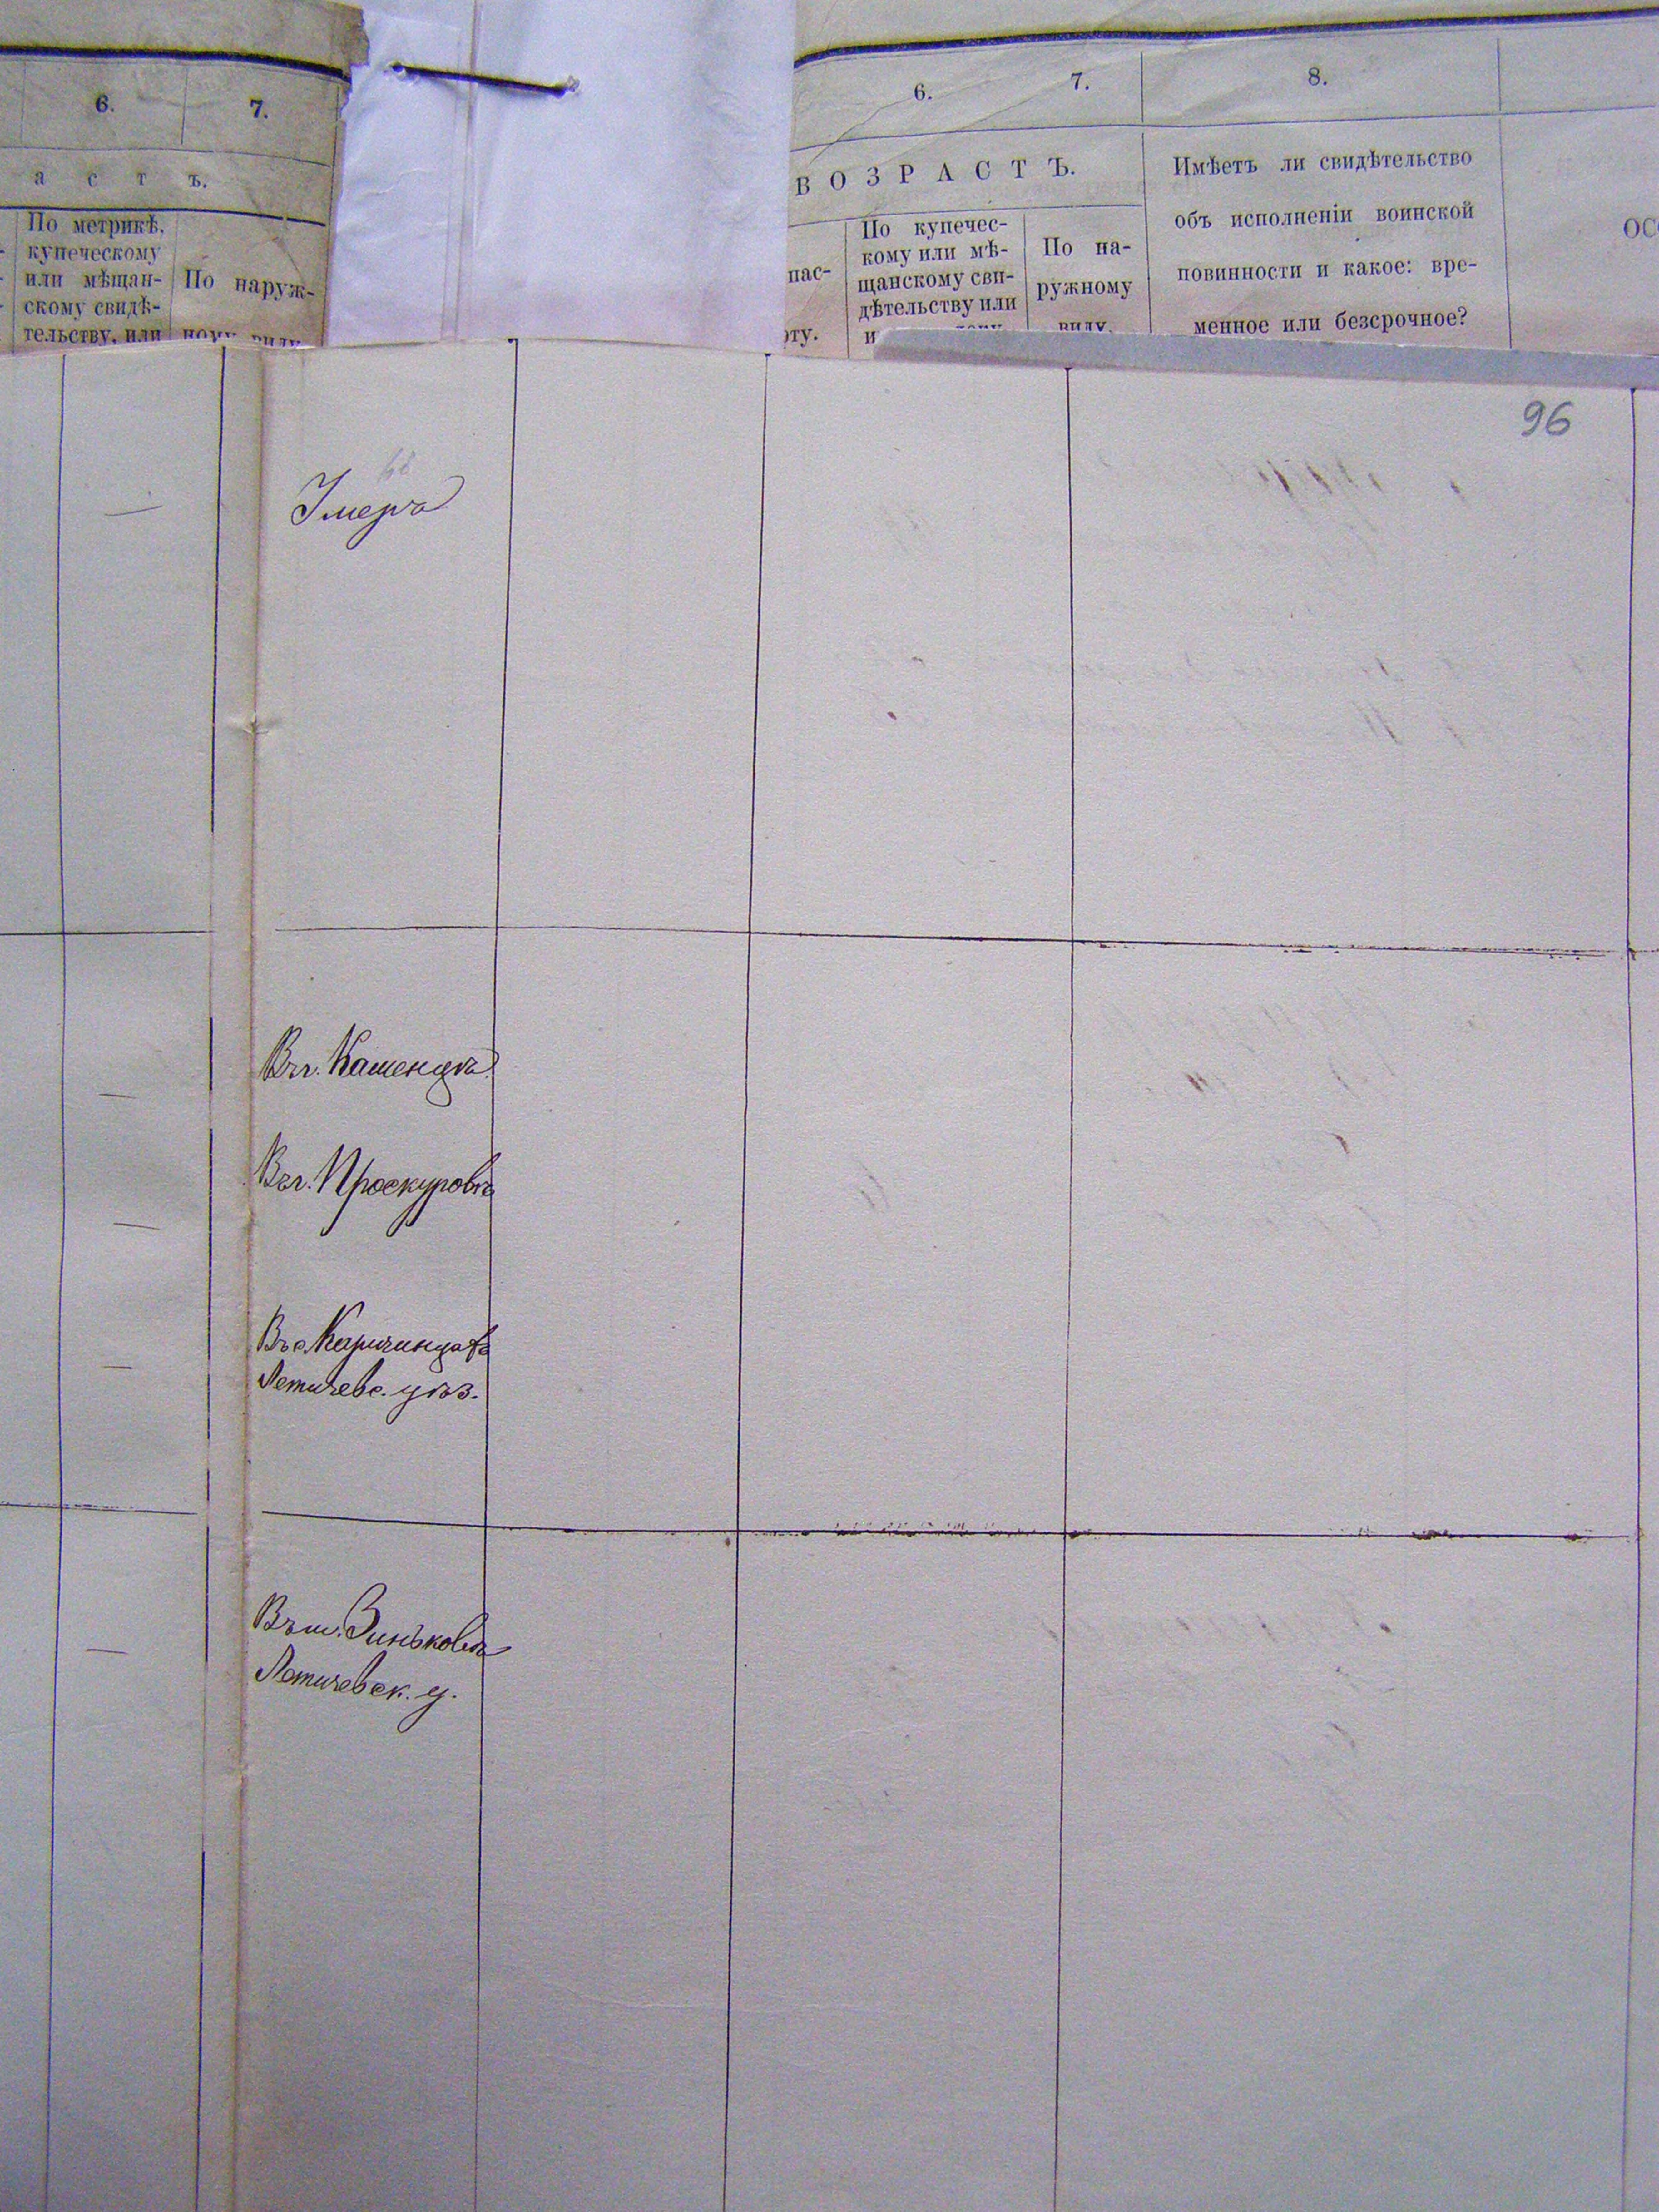 6. 7.
а с т ъ.
По метрикѣ,
купеческому
или мѣщан-
скому свидѣ-
тельству, или
По наруж-
ному виду
6. 7. 8.
В О З Р А С Т Ъ.
пас-
рту.
По купечес-
кому или мѣ-
щанскому сви-
дѣтельству или
По на-
ружному
виду.
Имѣетъ ли свидѣтельство
объ исполненіи воинской
повинности и какое: вре-
менное или безсрочное?
ОС
96
68
Умерла
Въ г. Каменцѣ
Въ г. Проскуровѣ
Въ с.
Летичевс. уѣз.
Въ м. Зиньковѣ
Летичевск. у.